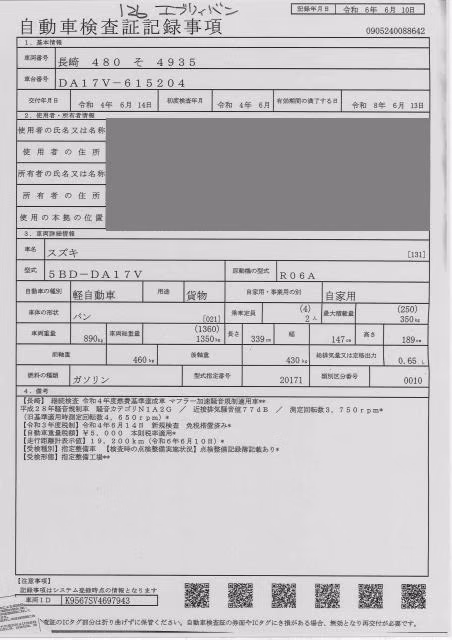 126 エブリィバン
記録年月日 令和 6年 6月 10日
自動車検査証記録事項
0905240088642
1．基本情報
車両番号 長崎 480 そ 4935
車台番号 DA17V-615204
交付年月日 令和 4年 6月 14日 初度検査年月 令和 4年 6月 有効期間の満了する日 令和 8年 6月 13日
2．使用者・所有者情報
使用者の氏名又は名称
使用者の住所
所有者の氏名又は名称
所有者の住所
使用の本拠の位置
3．車両詳細情報
車名 スズキ [131]
型式 5BD-DA17V 原動機の型式 R06A
自動車の種別 軽自動車 用途 貨物 自家用・事業用の別 自家用
車体の形状 バン [021] 乗車定員 (4) 2人 最大積載量 (250) 350kg
車両重量 890kg 車両総重量 (1360) 1350kg 長さ 339cm 幅 147cm 高さ 189cm
前軸重 460kg 後軸重 430kg 総排気量又は定格出力 0.65L
燃料の種類 ガソリン 型式指定番号 20171 類別区分番号 0010
4．備考
【長崎】 継続検査 令和4年度燃費基準達成車 マフラー加速騒音規制適用車**
平成28年騒音規制車 騒音カテゴリN1A2G ／ 近接排気騒音値77dB ／ 測定回転数3,750rpm*
(旧基準適用時測定回転数4,650rpm)*
【令和3年度税制】令和4年6月14日 新規検査 免税措置済み*
【自動車重量税額】¥5,000 本則税率適用*
【走行距離計表示値】19,200km(令和6年6月10日)*
【受検種別】指定整備車 【検査時の点検整備実施状況】点検整備記録簿記載あり*
【受検形態】指定整備工場**
【注意事項】
記録事項はシステム登録時点の情報となります
車両ID K9567SV4697943
査証のICタグ部分は折り曲げずに保管ください。自動車検査証の券面やICタグにき損がある場合、無効となり再交付が必要です。